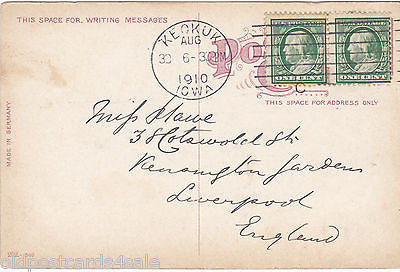 THIS SPACE FOR WRITING MESSAGES
KEOKUK
AUG
30 6-30PM
1910
IOWA
Po
ONE CENT
ONE CENT
C
THIS SPACE FOR ADDRESS ONLY
MADE IN GERMANY
Miss Hawe
3 Cotswold St
Kensington Gardens
Liverpool
England
oldpostcards4sale